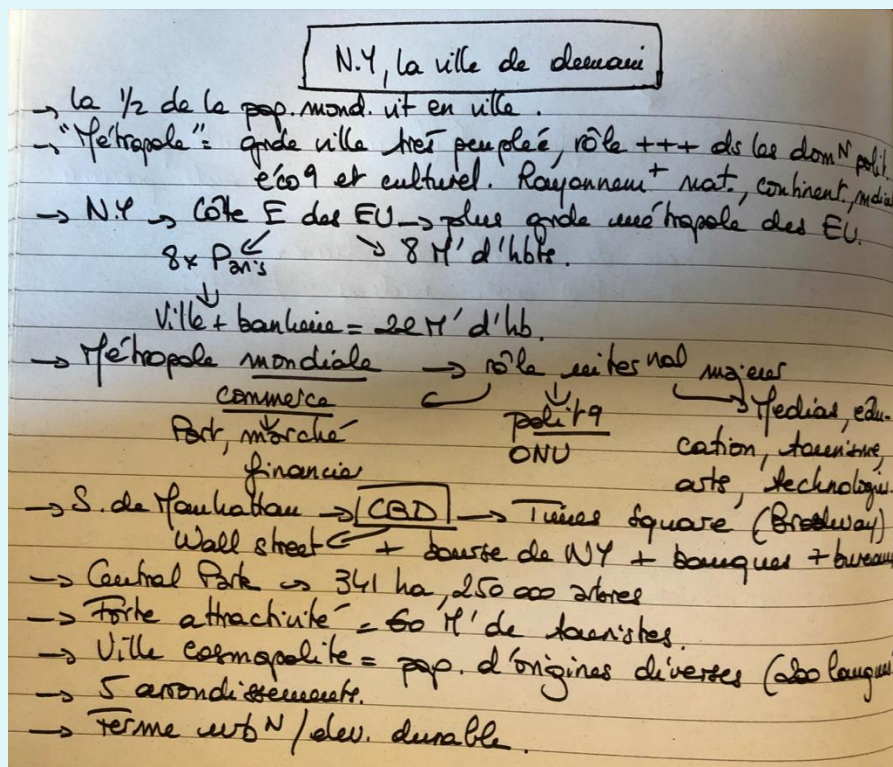 N.Y, la ville de demain
→ la 1/2 de la pop. mond. vit en ville.
→ "Métropole" = grde ville très peuplée, rôle +++ ds les domN polit.
éco9 et culturel. Rayonnem+ nat., continent, mdial
→ N.Y → Côte E des EU → plus grde métropole des EU.
8x Paris 8 M' d'hbts.
Ville + banlieue = 22 M' d'hb.
→ Métropole mondiale → rôle internal majeur
commerce polit9 Medias, edu-
Port, marché ONU cation, tourisme,
financier arts, technologie.
→ S. de Manhattan → CBD → Times Square (Broadway)
Wall street + bourse de NY + banques + bureaux
→ Central Park → 341 ha, 250 000 arbres
→ Forte attractivité = 60 M' de touristes.
→ Ville cosmopolite = pop. d'origines diverses (200 langues
→ 5 arrondissements.
→ Ferme urbN / dev. durable.